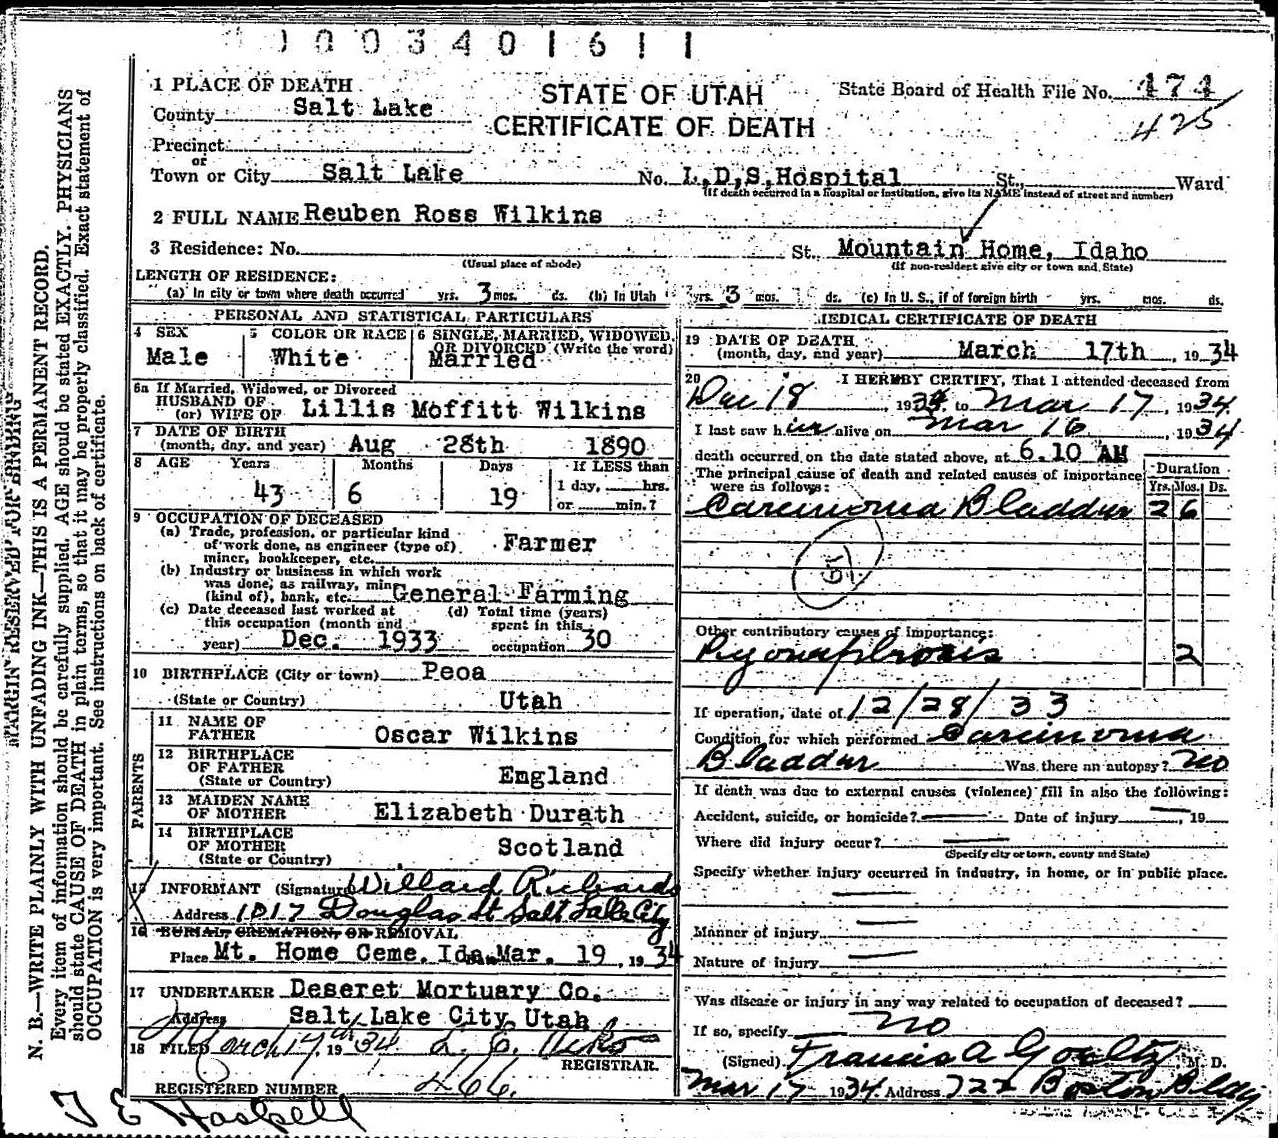 1003401611
1 PLACE OF DEATH
County Salt Lake
Precinct
or
Town or City Salt Lake No. L,D,S,Hospital St., Ward
(If death occurred in a hospital or institution, give its NAME instead of street and number)
STATE OF UTAH
CERTIFICATE OF DEATH
State Board of Health File No. 474
425
2 FULL NAME Reuben Ross Wilkins
3 Residence: No. St. Mountain Home, Idaho
(Usual place of abode) (If non-resident give city or town and State)
LENGTH OF RESIDENCE:
(a) In city or town where death occurred yrs. 3 mos. ds. (b) In Utah yrs. 3 mos. ds. (c) In U. S., if of foreign birth yrs. mos. ds.
PERSONAL AND STATISTICAL PARTICULARS
4 SEX Male
5 COLOR OR RACE White
6 SINGLE, MARRIED, WIDOWED,
OR DIVORCED (Write the word)
Married
6a If Married, Widowed, or Divorced
HUSBAND OF
(or) WIFE OF Lillis Moffitt Wilkins
7 DATE OF BIRTH
(month, day, and year) Aug 28th 1890
8 AGE Years Months Days If LESS than
43 6 19 1 day, hrs.
or min.?
9 OCCUPATION OF DECEASED
(a) Trade, profession, or particular kind
of work done, as engineer (type of)
miner, bookkeeper, etc. Farmer
(b) Industry or business in which work
was done, as railway, mine
(kind of), bank, etc. General Farming
(c) Date deceased last worked at
this occupation (month and
year) Dec. 1933
(d) Total time (years)
spent in this
occupation 30
10 BIRTHPLACE (City or town) Peoa
(State or Country) Utah
PARENTS
11 NAME OF
FATHER Oscar Wilkins
12 BIRTHPLACE
OF FATHER
(State or Country) Emgland
13 MAIDEN NAME
OF MOTHER Elizabeth Durath
14 BIRTHPLACE
OF MOTHER
(State or Country) Scotland
15 INFORMANT (Signature) Willard Richards
Address 1017 Douglas St Salt Lake City
16 BURIAL, CREMATION, OR REMOVAL
Place Mt. Home Ceme. Ida Mar. 19, 1934
17 UNDERTAKER Deseret Mortuary Co.
Address Salt Lake City Utah
18 FILED March 17th 1934
REGISTRAR.
REGISTERED NUMBER 466
T E Haskell
MEDICAL CERTIFICATE OF DEATH
19 DATE OF DEATH
(month, day, and year) March 17th, 1934
20 I HEREBY CERTIFY, That I attended deceased from
Dec 18, 1934 to Mar 17, 1934
I last saw him alive on Mar 16, 1934
death occurred on the date stated above, at 6.10 AM
The principal cause of death and related causes of importance
were as follows:
Duration
Yrs. Mos. Ds.
Carcinoma Bladder 2 6
Other contributory causes of importance:
Pyonephrosis 2
If operation, date of 12/28/33
Condition for which performed Carcinoma
Bladder Was there an autopsy? no
If death was due to external causes (violence) fill in also the following:
Accident, suicide, or homicide? Date of injury , 19
Where did injury occur?
(Specify city or town, county and State)
Specify whether injury occurred in industry, in home, or in public place.
Manner of injury
Nature of injury
Was disease or injury in any way related to occupation of deceased?
If so, specify no
(Signed) Francis A Goeltz M. D.
Mar 17 1934 Address 722 Boston Bldg
MARGIN RESERVED FOR BINDING
N. B.—WRITE PLAINLY WITH UNFADING INK—THIS IS A PERMANENT RECORD.
Every item of information should be carefully supplied. AGE should be stated EXACTLY. PHYSICIANS
should state CAUSE OF DEATH in plain terms, so that it may be properly classified. Exact statement of
OCCUPATION is very important. See instructions on back of certificate.